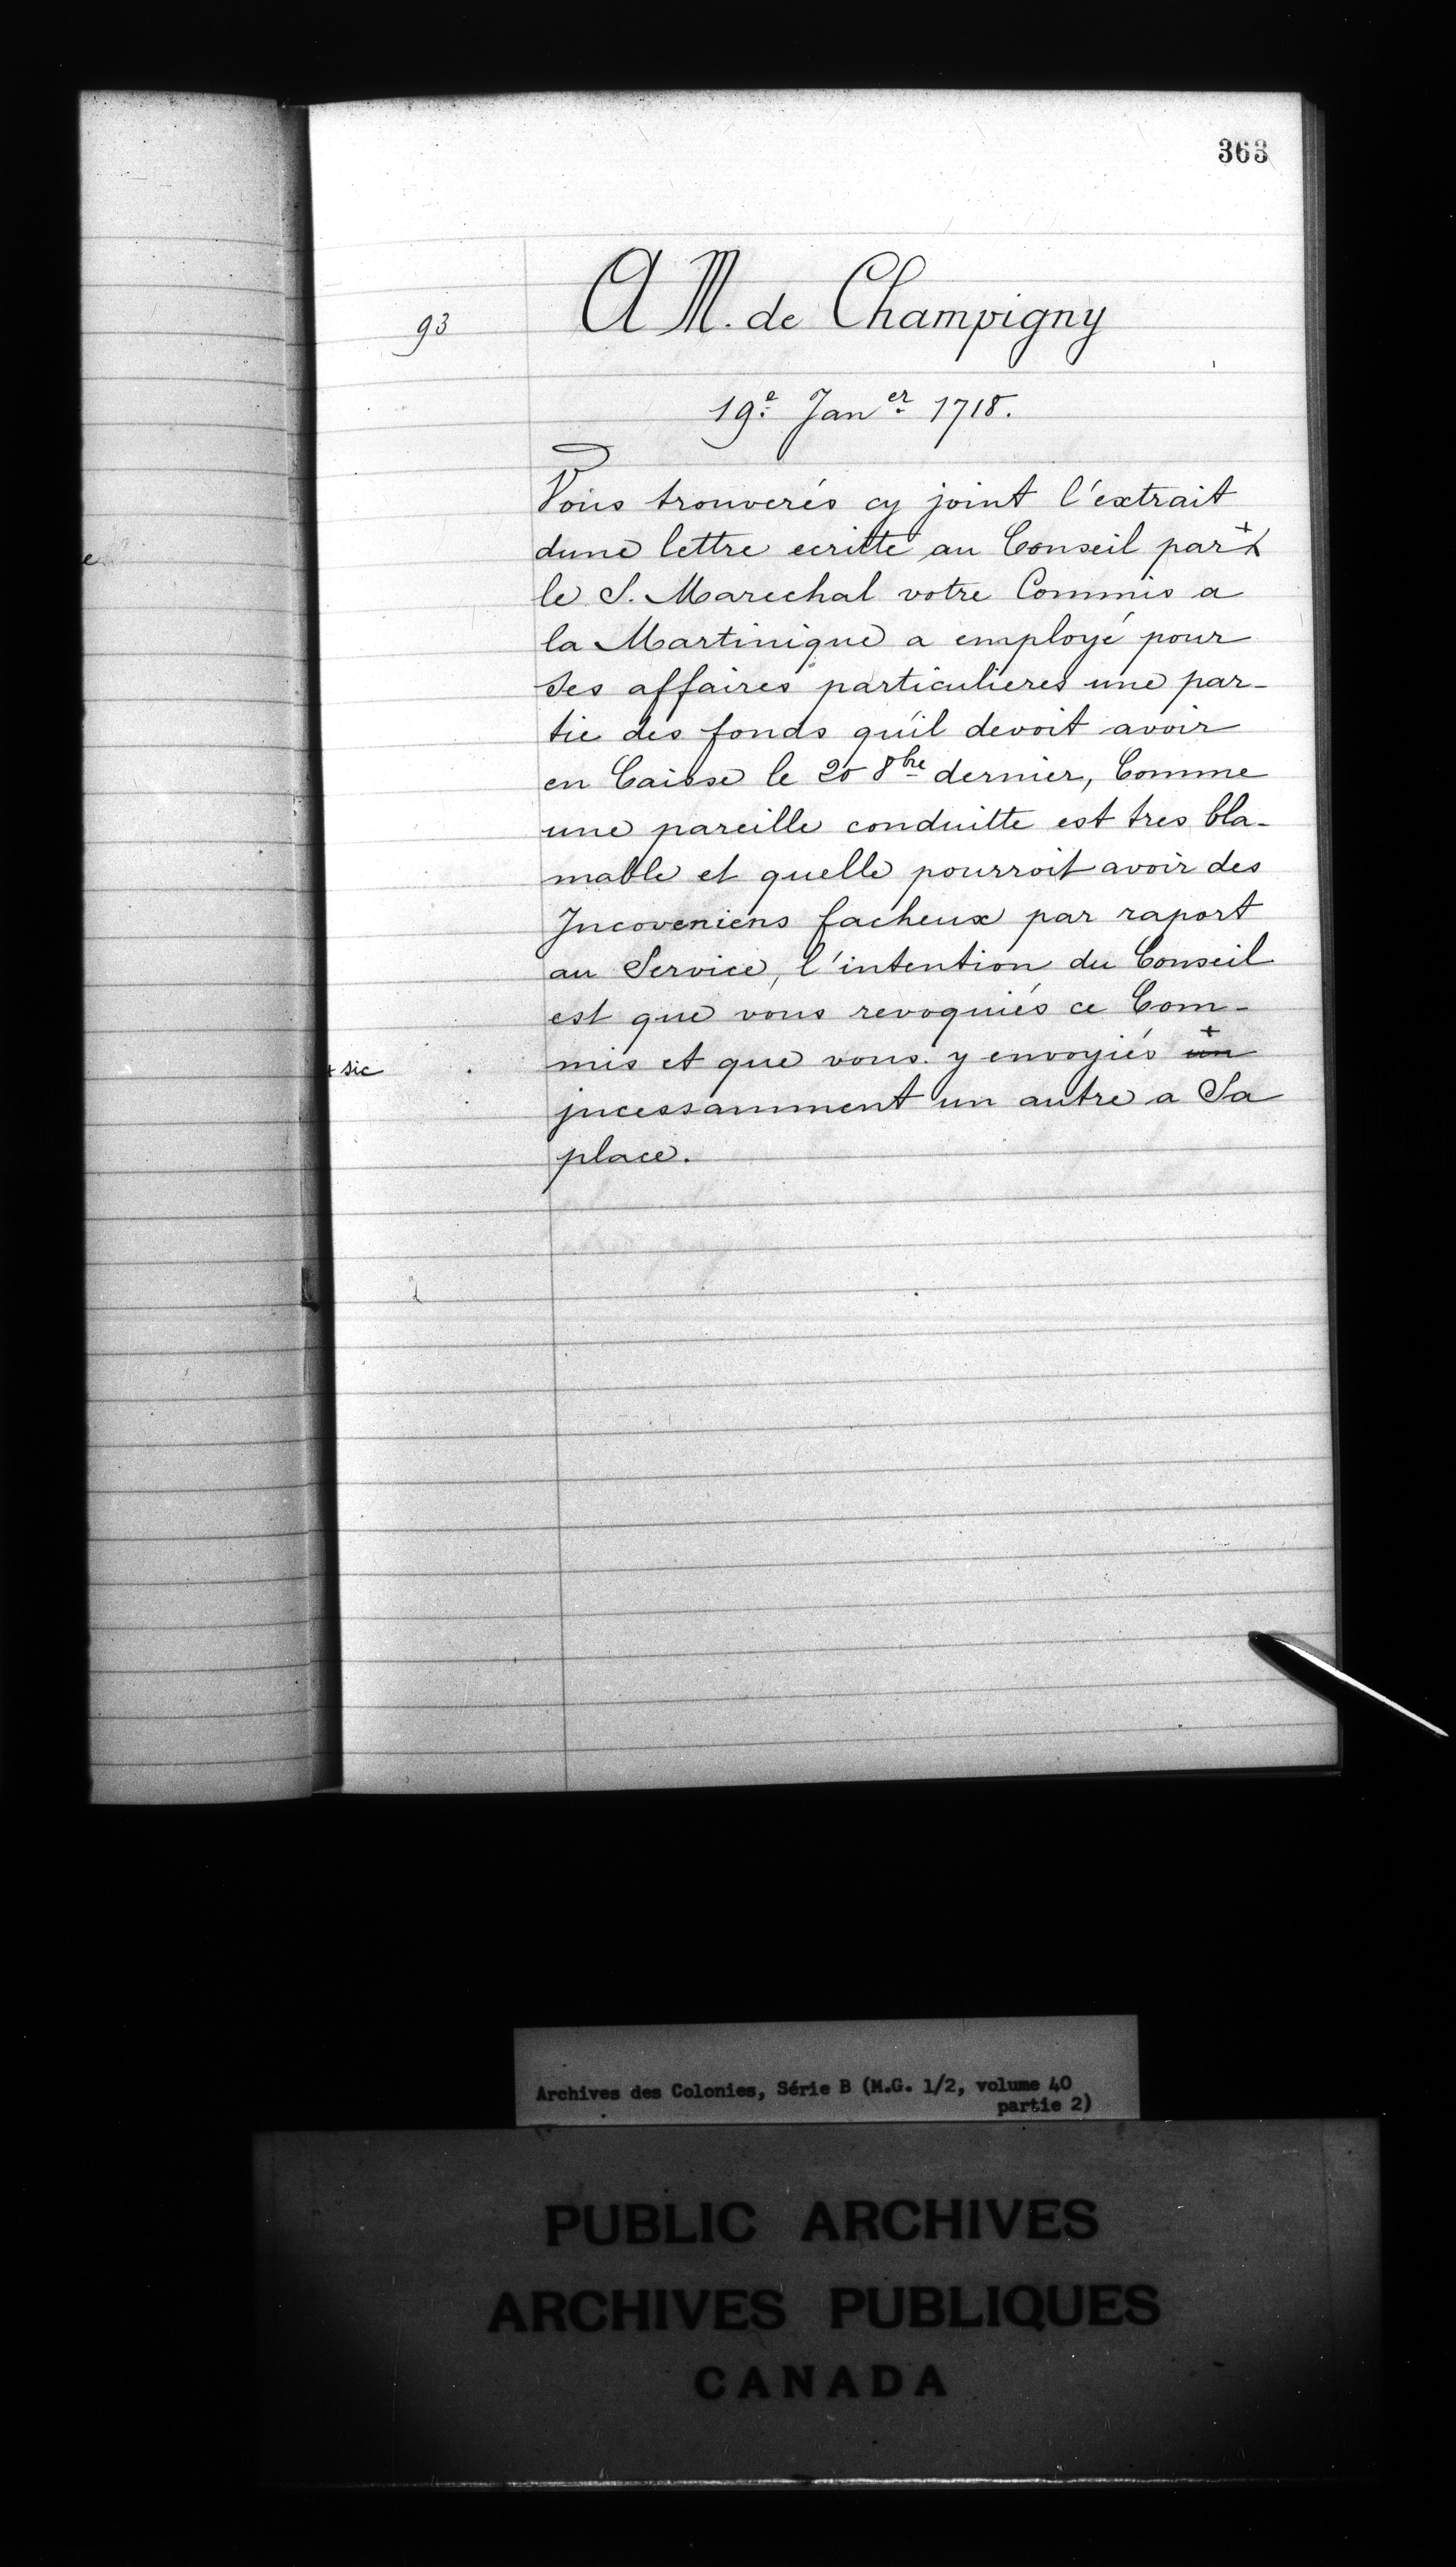 363
93
A M. de Champigny
19e. Janer. 1718.
Vous trouverés cy joint l'extrait
dune lettre ecritte au Conseil par +
le S. Marechal votre Commis a
la Martinique a employé pour
ses affaires particulieres une par-
tie des fonds qu'il devoit avoir
en Caisse le 20 8bre dernier, Comme
une pareille conduitte est tres bla-
mable et quelle pourroit avoir des
Incoveniens facheux par raport
au Service, l'intention du Conseil
est que vous revoquiés ce Com-
mis et que vous y envoyiés un +
+ sic
jncessamment un autre a Sa
place.
Archives des Colonies, Série B (M.G. 1/2, volume 40
partie 2)
PUBLIC ARCHIVES
ARCHIVES PUBLIQUES
CANADA